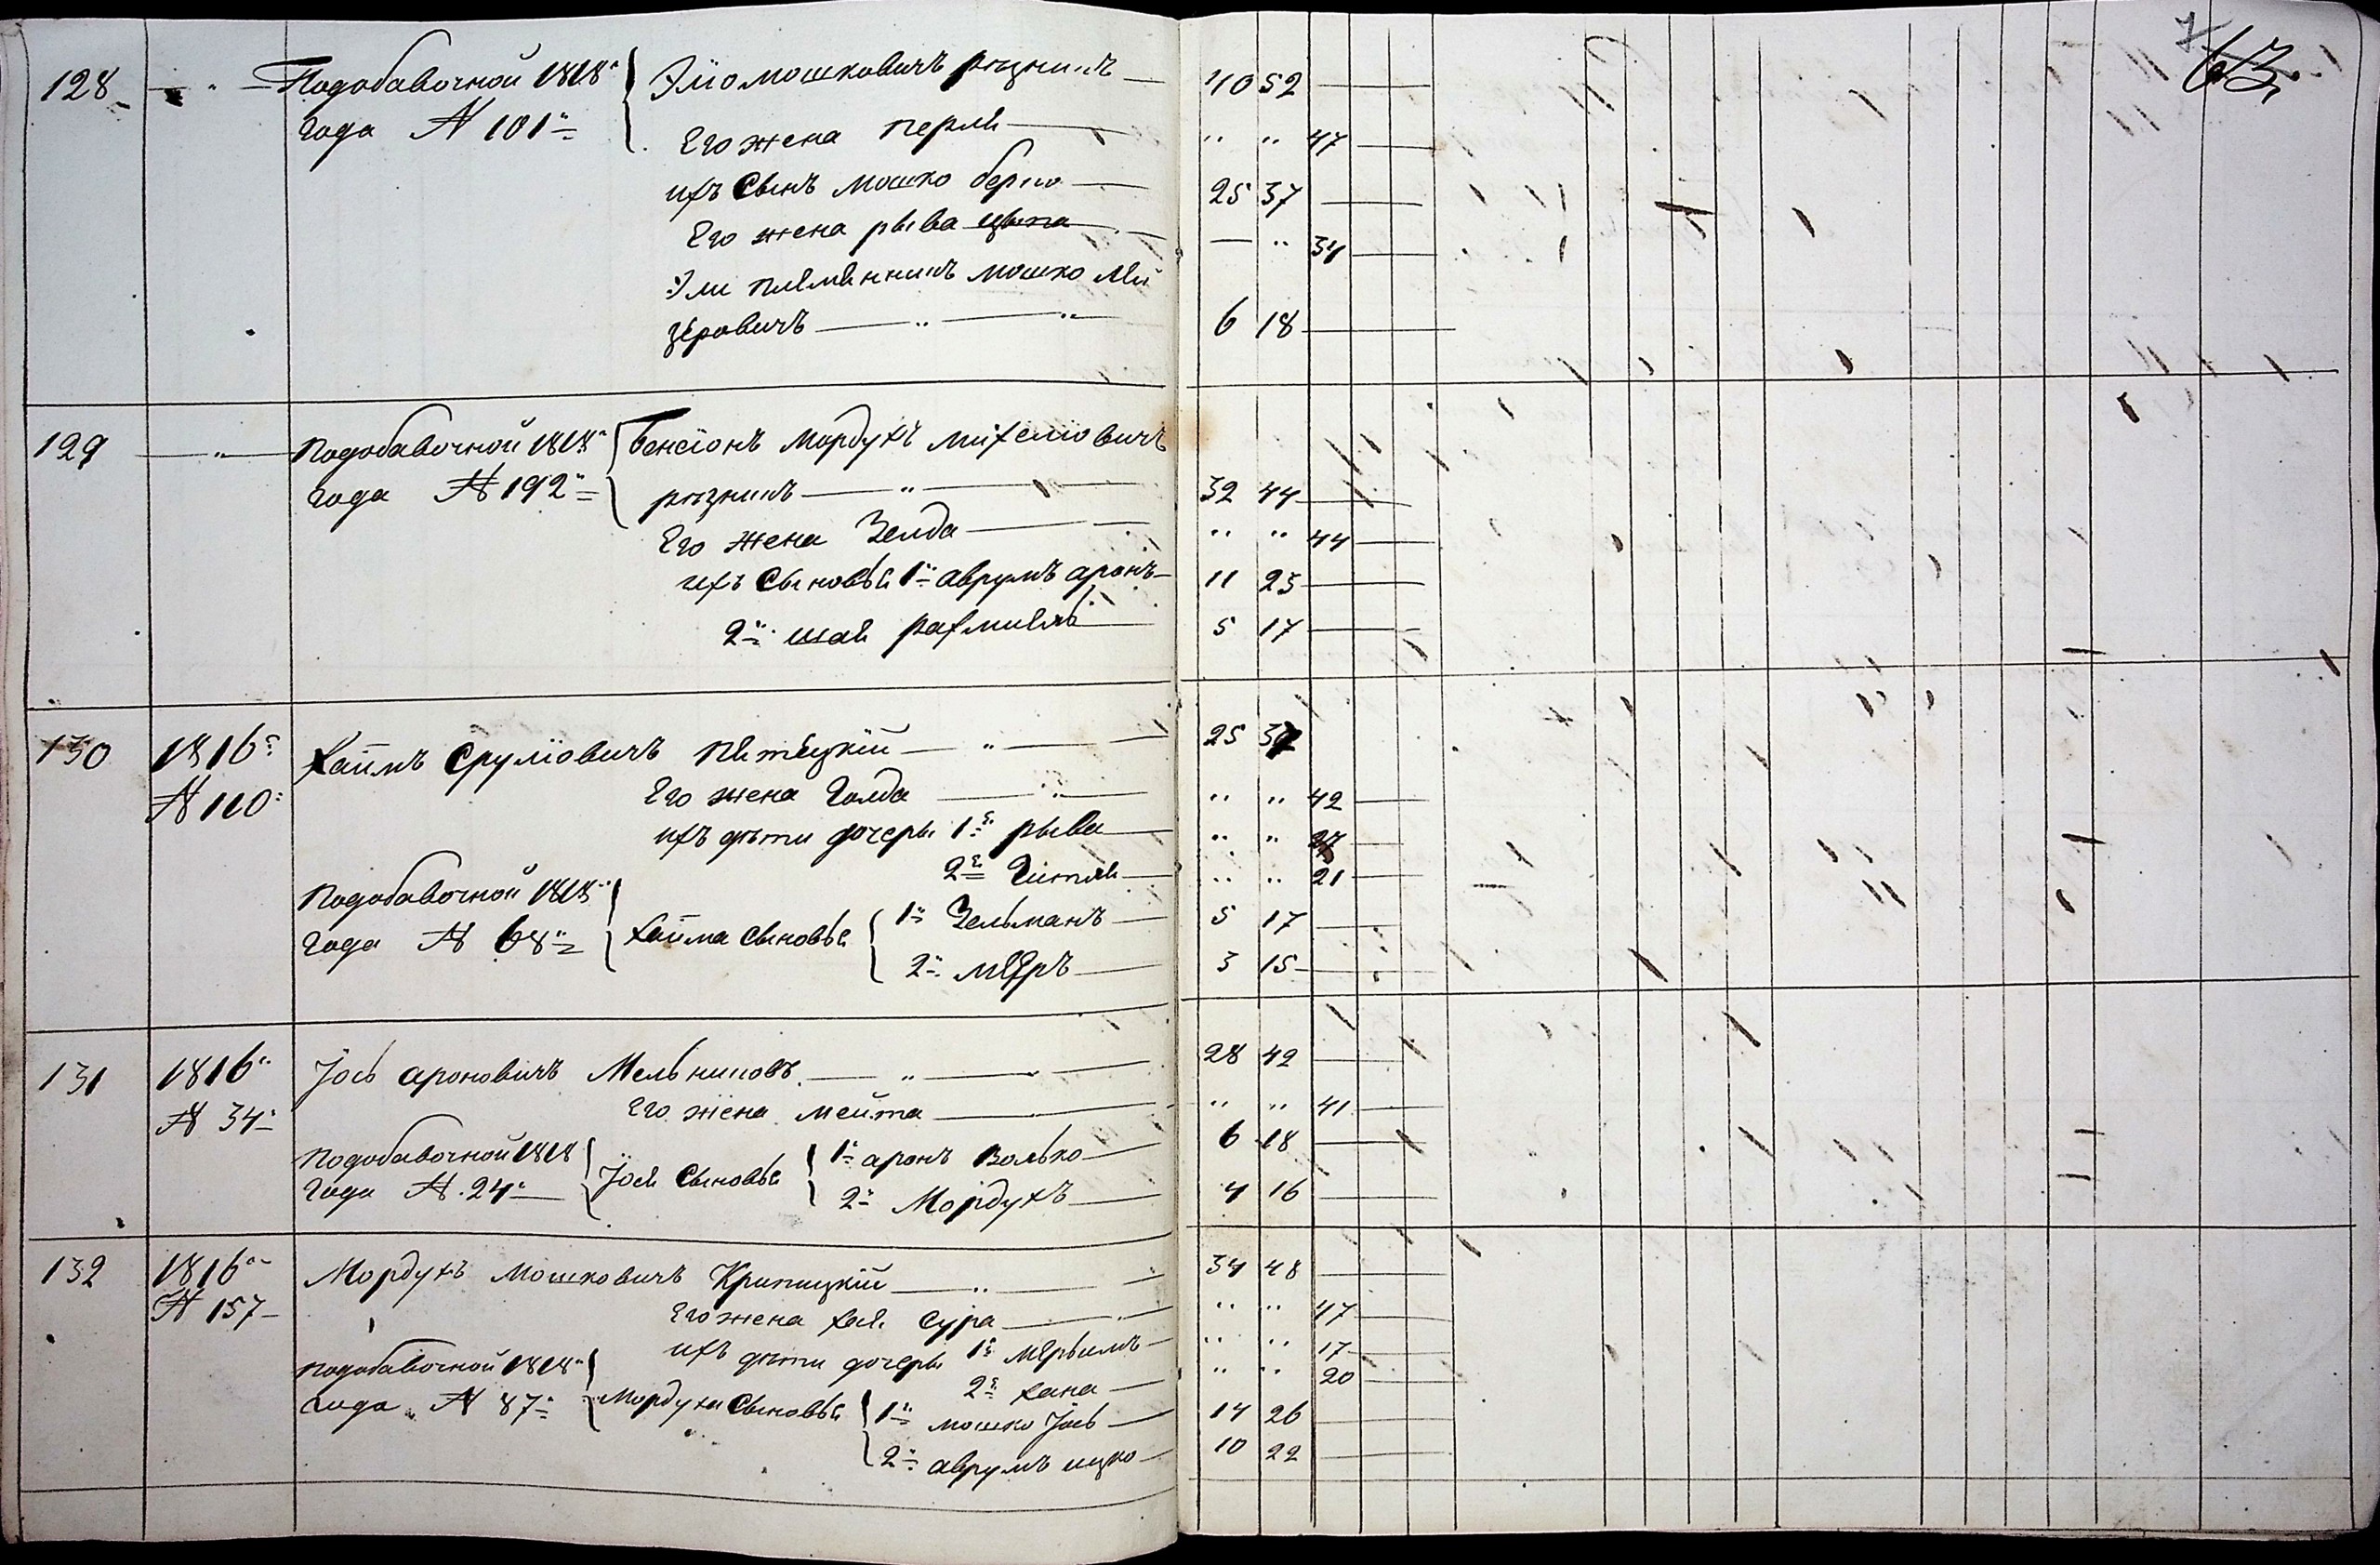 63
128 Подобавочной 1818 Эліо мошковичъ резникъ 40 52
года № 101 Его жена перля 47
ихъ Сынъ мошко берко 25 37
Его жена рыва ципа 34
Эли племянникъ мошко лей
зеровичъ 6 18
129 Подобавочной 1818 бенсіонъ мордухъ михеліовичъ
года № 192 резникъ 32 44
Его жена Зелда 44
ихъ Сыновья 1 аврумъ аронъ 11 23
2 шая рахмиель 5 17
130 1816 Хаимъ Сруліовичъ 25 37
№ 110 Его жена Голда 42
ихъ дети дочери 1 рыва
2 Гитля 21
Подобавочной 1818
года № 68 хаима Сыновья 1 Зельманъ 5 17
2 меэръ 3 15
131 1816 Іось ароновичъ Мельниковъ 28 42
№ 34 Его жена мейта 41
Подобавочной 1818 1 аронъ Волько 6 18
года № 24 Іося Сыновья 2 Мордухъ 4 16
132 1816 Мордухъ Мошковичъ Крипицкій 34 48
№ 157 Его жена хая Сура 47
ихъ дети дочери 1 мерьимъ 17
2 хана 20
подобавочной 1818
года № 87 Мордуха Сыновья 1 мошко Іось 14 26
2 аврумъ ицко 10 22